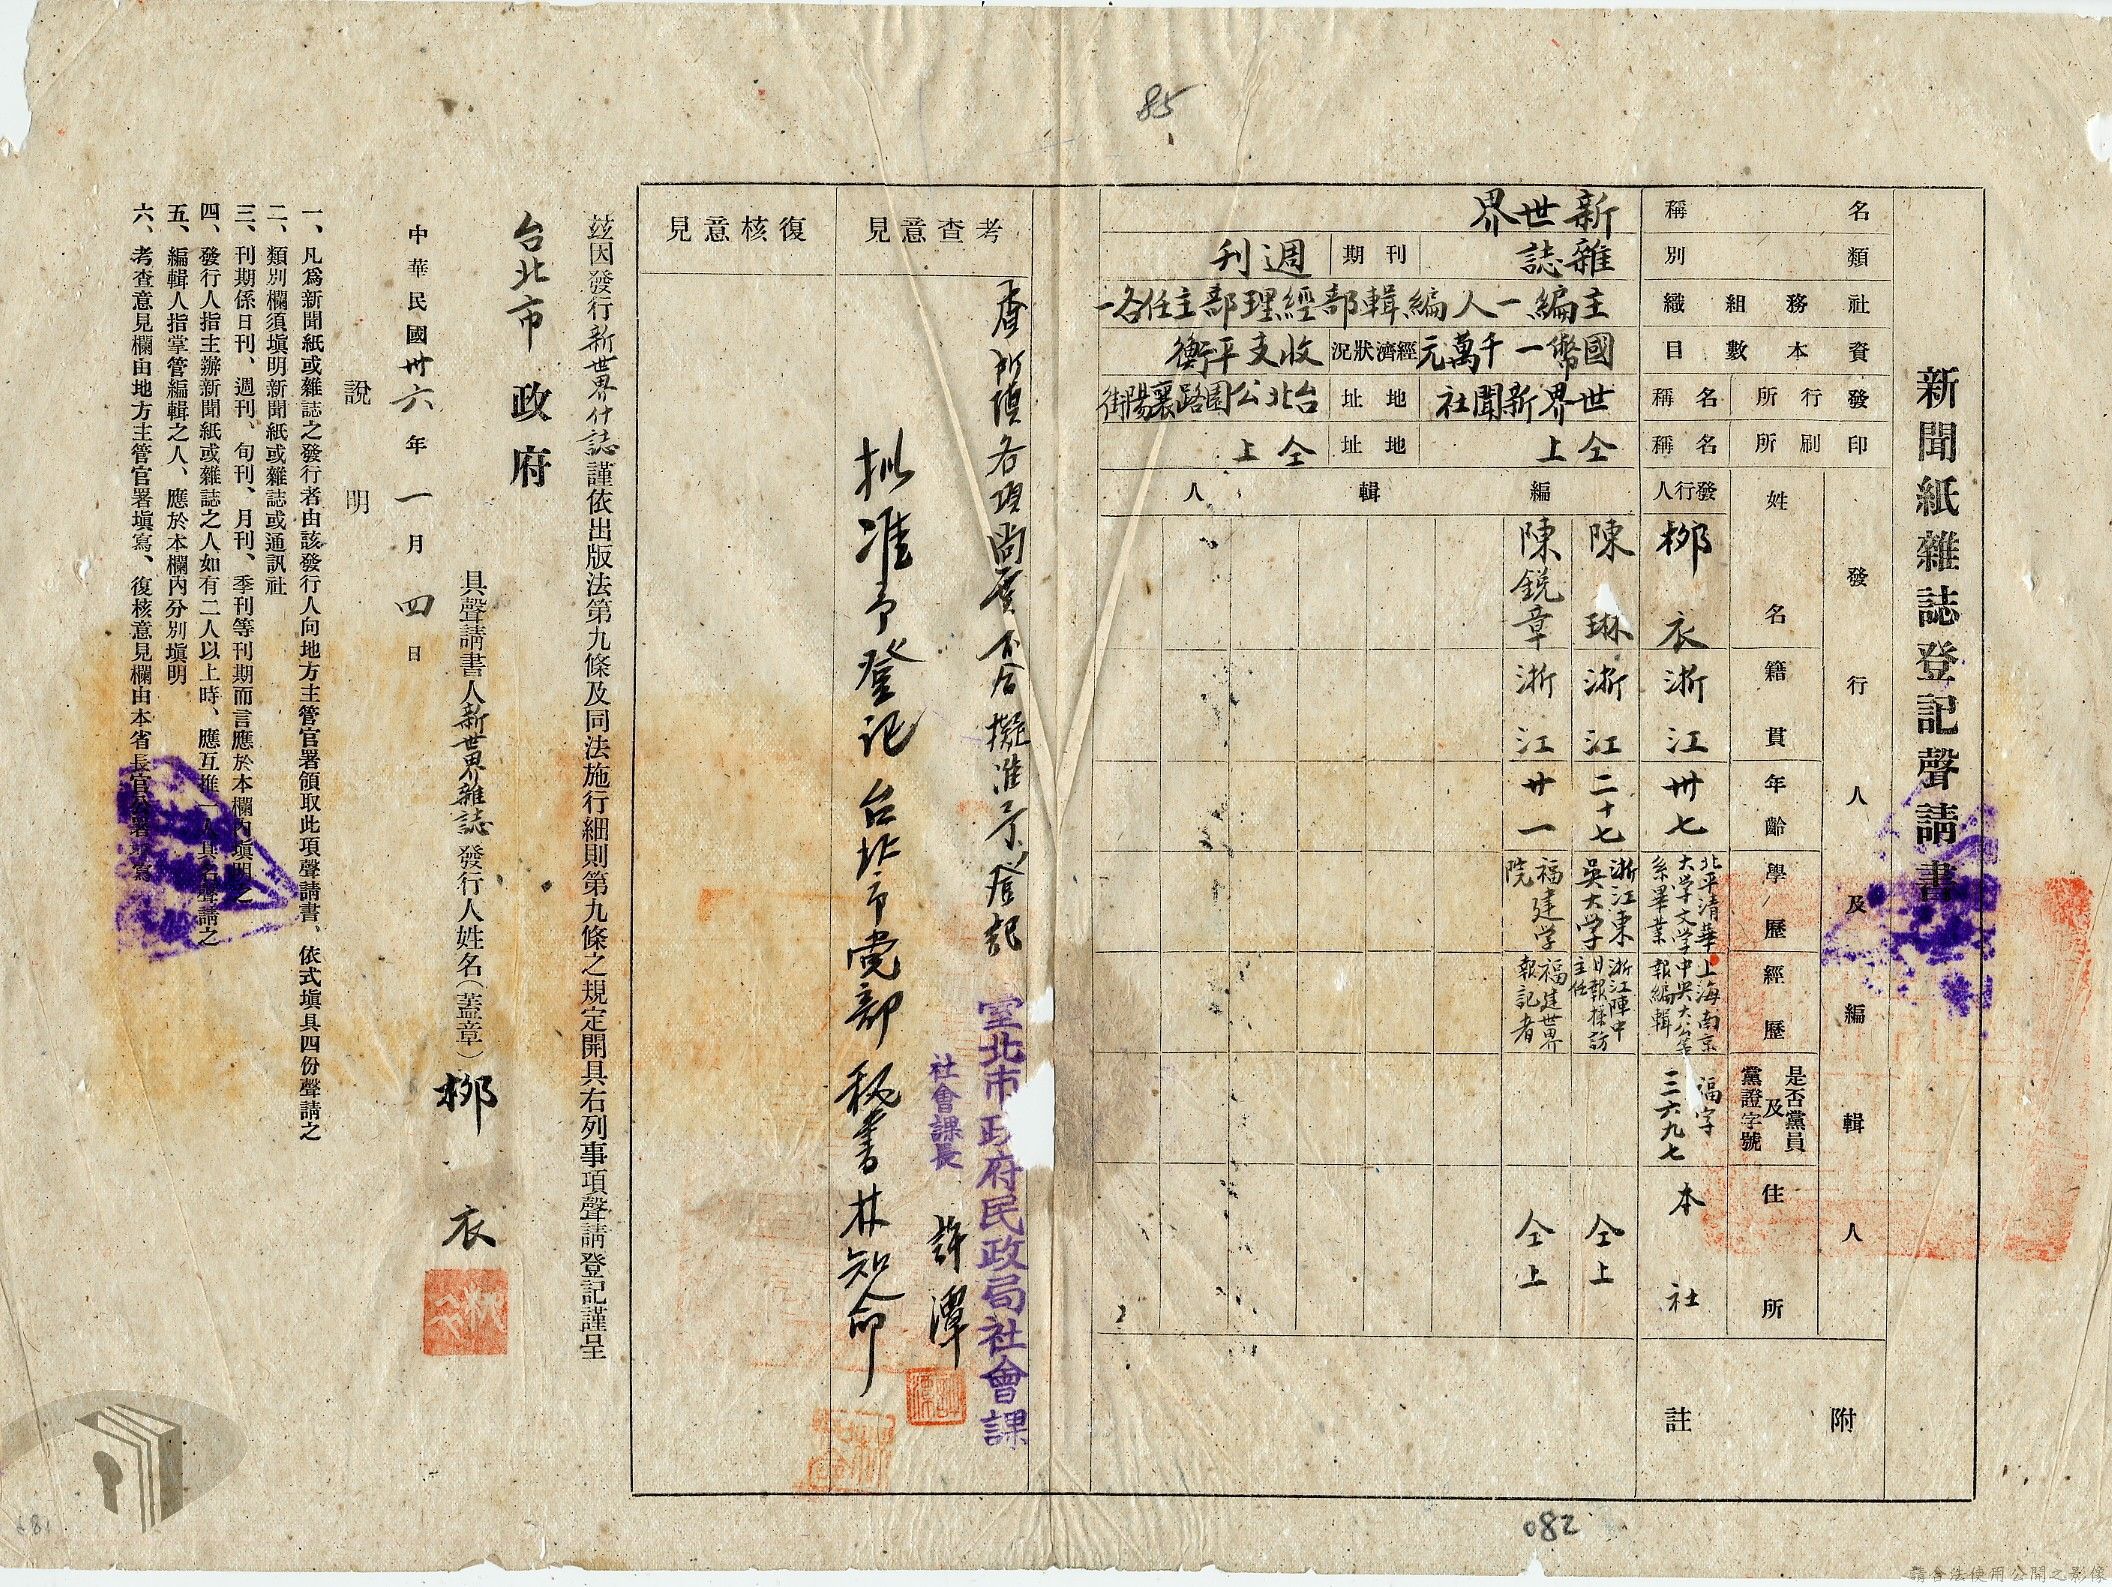 85
新聞紙雜誌登記聲請書
名稱 新世界
類別 雜誌 刊期 週刊
社務組織 主編一人編輯部經理部主任各一
資本數目 國幣一千萬元 經濟狀況 收支平衡
發行所名稱 世界新聞社 地址 台北公園路襄陽街
印刷所名稱 仝上 地址 仝上
發行人及編輯人
姓名 籍貫 年齡 學歷 經歷 是否黨員及黨證字號 住所
發行人 柳衣 浙江 卅七 北平清華大学文学系畢業 上海南京中央大公等報編輯 福字三六九七 本社
編輯人 陳琳 浙江 二十七 浙江東吳大学 浙江陣中日報採訪主任 仝上
陳銳章 浙江 廿一 福建学院 福建世界報記者 仝上
附註
考查意見
查所填各項尚屬合擬准予登記
室北市政府民政局社會課
社會課長 許潭
拟准予登记 台北市党部秘書林知命
復核意見
茲因發行新世界什誌謹依出版法第九條及同法施行細則第九條之規定開具右列事項聲請登記謹呈
台北市政府
具聲請書人新世界雜誌發行人姓名(蓋章)柳衣
中華民國卅六年一月四日
說明
一、凡爲新聞紙或雜誌之發行者由該發行人向地方主管官署領取此項聲請書、依式塡具四份聲請之
二、類別欄須塡明新聞紙或雜誌或通訊社
三、刊期係日刊、週刊、旬刊、月刊、季刊等刊期而言應於本欄內塡明之
四、發行人指主辦新聞紙或雜誌之人如有二人以上時、應互推一人具名聲請之
五、編輯人指掌管編輯之人、應於本欄內分別塡明
六、考查意見欄由地方主管官署塡寫、復核意見欄由本省長官公署塡寫
082
081
請合法使用公開之影像